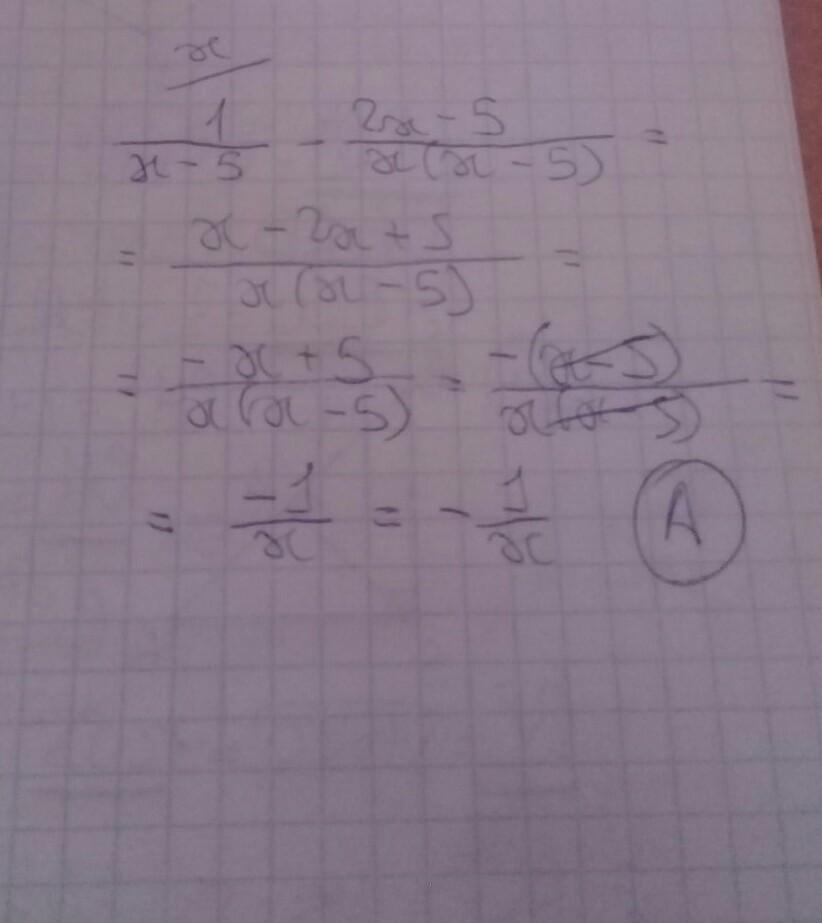 x
1/(x-5) - (2x-5)/(x(x-5)) =
= (x-2x+5)/(x(x-5)) =
= (-x+5)/(x(x-5)) = -(x-5)/(x(x-5)) =
= -1/x = -1/x A